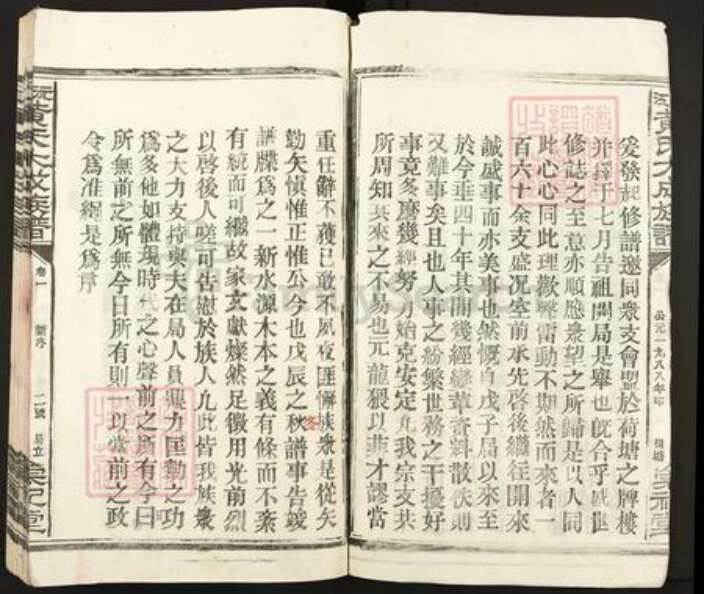 爰發起修譜邀同衆支會盟於荷塘之牌樓
并擇于七月告祖開局是舉也旣合乎盛世
修誌之至意亦順應衆望之所歸是以人同
此心心同此理歡聲雷動不期然而來者一
百六十余支盛况空前承先啓後繼往開來
誠盛事而亦美事也然慨自戊子局以來至
於今垂四十年其間幾經變革資料散佚則
又難事矣且也人事之紛繁世務之干擾好
事竟多磨幾經努力始克安定凡我宗支共
所周知其來之不易也元龍猥以菲才謬當
重任辭不獲已敢不夙夜匪懈族衆是從矢
勤矢慎惟正惟公今也戊辰之秋譜事告竣
冬
譜牒爲之一新水源木本之義有條而不紊
有統而可繼故家文獻燦然足徵用光前烈
以啓後人嗟可告慰於族人凡此皆我族衆
之大力支持與夫在局人員與力匡勷之功
爲多他如體現時代之心聲前之所有今曰
所無前之所無今日所有則一以當前之政
令爲准繩是爲序
黃氏大成族譜
卷一
公元一九八八年